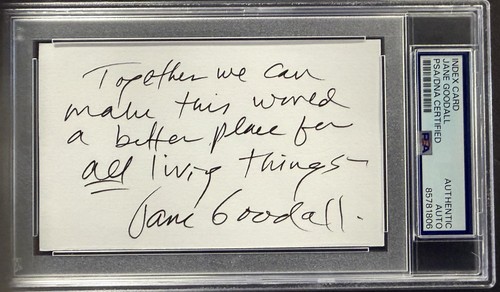 Together we can
make this world
a better place for
all living things—
Jane Goodall.
INDEX CARD
JANE GOODALL
PSA/DNA CERTIFIED
PSA
AUTHENTIC
AUTO
85781806